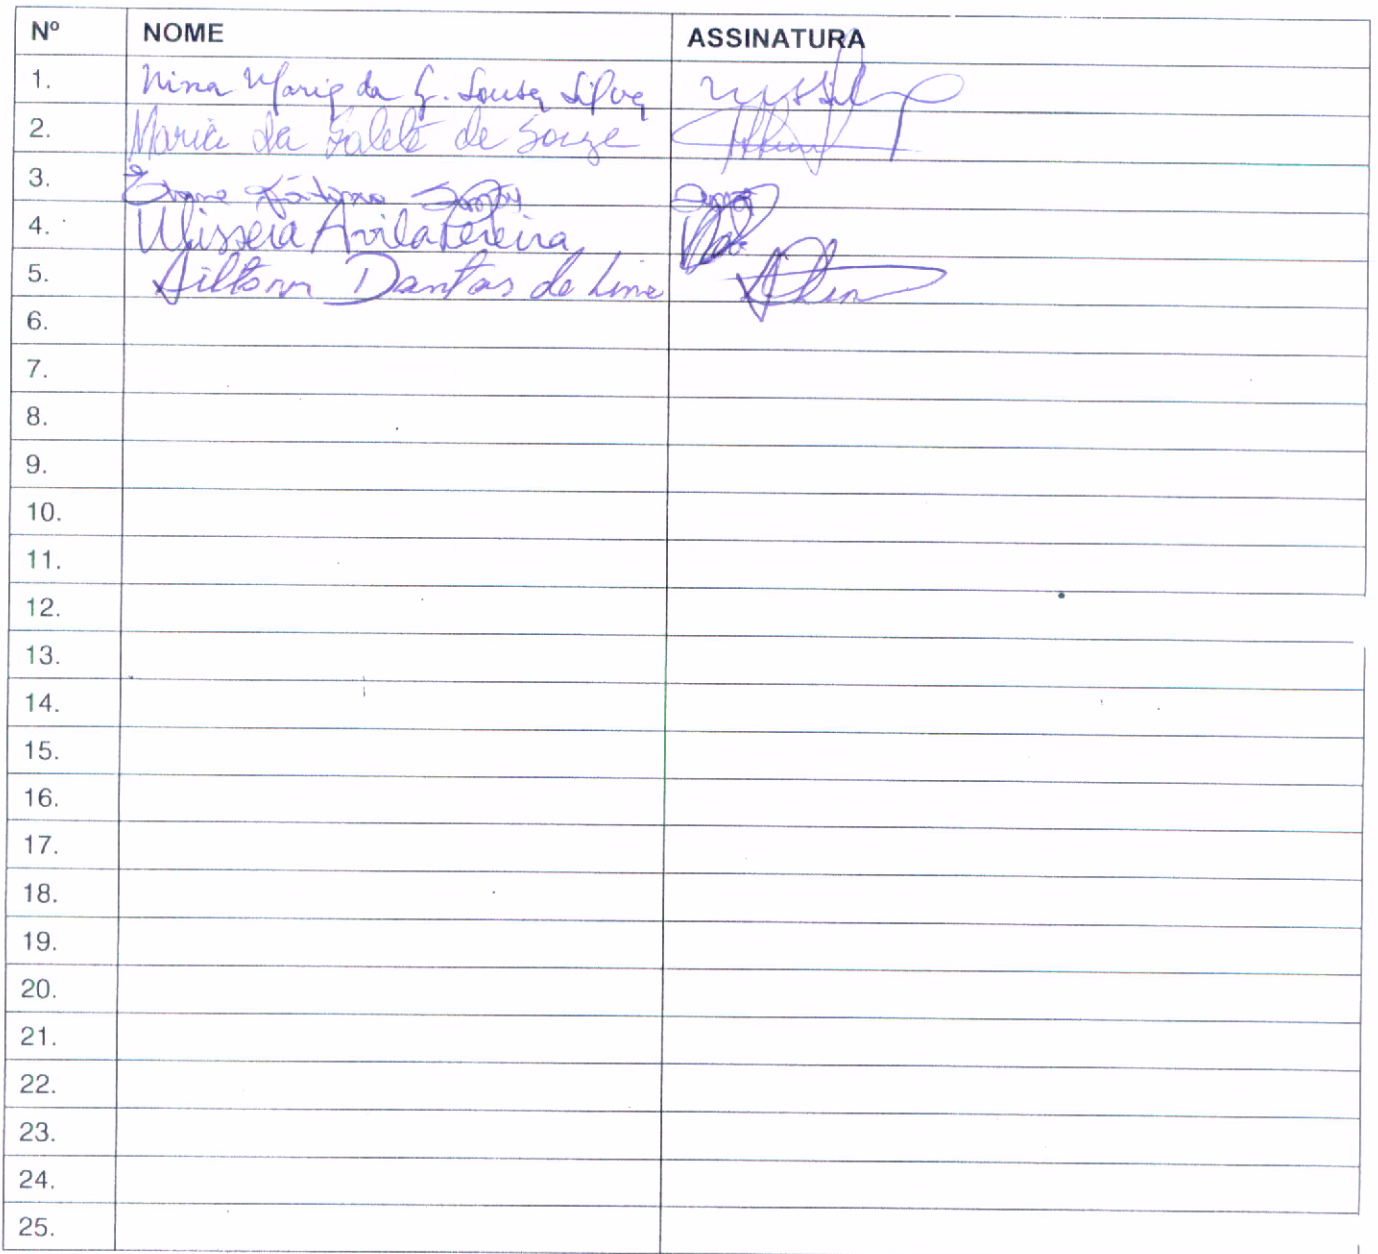 Nº NOME ASSINATURA
1. Nina Maria da G. Sousa Silva
2. Maria da Salete de Souza
3.
4. Ulisseia Avila Pereira
5. Ailton Dantas de Lima
6.
7.
8.
9.
10.
11.
12.
13.
14.
15.
16.
17.
18.
19.
20.
21.
22.
23.
24.
25.